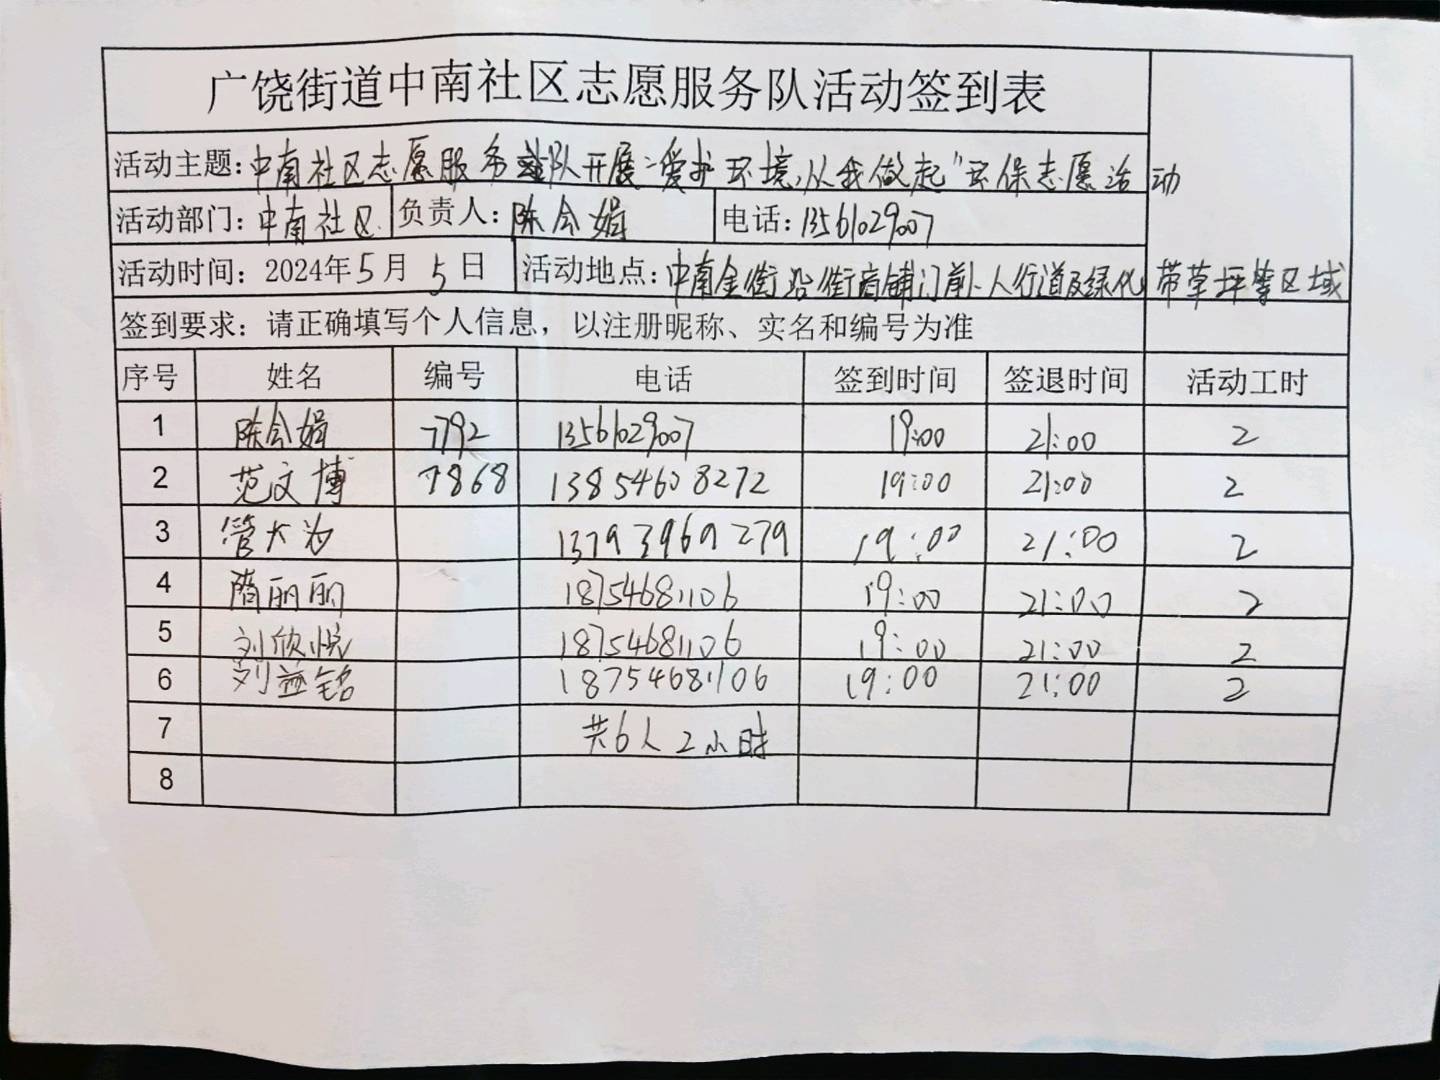 广饶街道中南社区志愿服务队活动签到表
活动主题:中南社区志愿服务队开展"爱护环境,从我做起"环保志愿活动
活动部门:中南社区 负责人:陈会娟 电话:13561029007
活动时间:2024年5月5日 活动地点:中南金街沿街商铺门前、人行道及绿化带草坪等区域
签到要求:请正确填写个人信息,以注册昵称、实名和编号为准
序号 姓名 编号 电话 签到时间 签退时间 活动工时
1 陈会娟 7792 13561029007 19:00 21:00 2
2 范文博 7868 13854608272 19:00 21:00 2
3 管大为 13793969279 19:00 21:00 2
4 隋丽丽 18754681106 19:00 21:00 2
5 刘欣悦 18754681106 19:00 21:00 2
6 刘益铭 18754681106 19:00 21:00 2
7 共6人2小时
8